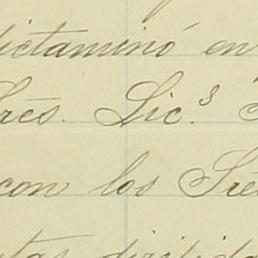 dictaminó en
Sres. Lic.s
con los Sre